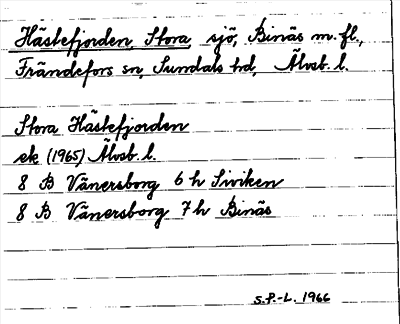 Hästefjorden, Stora, sjö, Binäs m.fl.,
Frändefors sn, Sundals hd, Älvsb. l.
Stora Hästefjorden
ek (1965) Älvsb. l.
8 B Vänersborg 6 h Siviken
8 B Vänersborg 7 h Binäs
S.P.-L. 1966